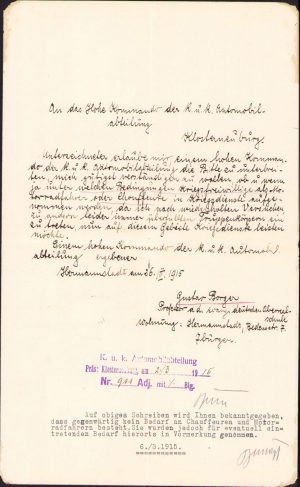 An das Hohe Kommando der k. u. k. Automobil-
abteilung
Klosterneuburg.
Unterzeichneter erlaube mir, einem hohen Komman-
do der k. u. k. Automobilabteilung die Bitte zu unterbrei-
ten, mich gütigst verständigen zu wollen, ob & wenn
ja unter welchen Bedingungen Kriegsfreiwillige als Mo-
torradfahrer oder Chauffeure in Kriegsdienst aufge-
nommen werden, da ich nach wiederholten Versuchen
zu andern, leider immer überfüllten Truppenkörpern ein
zu treten, nur auf diesem Gebiete Kriegsdienste leisten
möchte.
Einem hohen Kommando der k. u. k. Automobil
abteilung ergebener
Hermannstadt am 26. 1915
Gustav Borger
Professor a. d. evang. deutschen Oberreal-
schule
Wohnung: Hermannstadt, 7.
Sbürgen.
K. u. k. Automobilabteilung
Präs: Klosterneuburg am 2/3 1915
Nr. 911 Adj. mit Blg.
Auf obiges Schreiben wird Ihnen bekanntgegeben,
dass gegenwärtig kein Bedarf an Chauffeuren und Motor-
radfahrern besteht. Sie wurden jedoch für eventuell ein-
tretenden Bedarf hierorts in Vormerkung genommen.
6./3.1915.